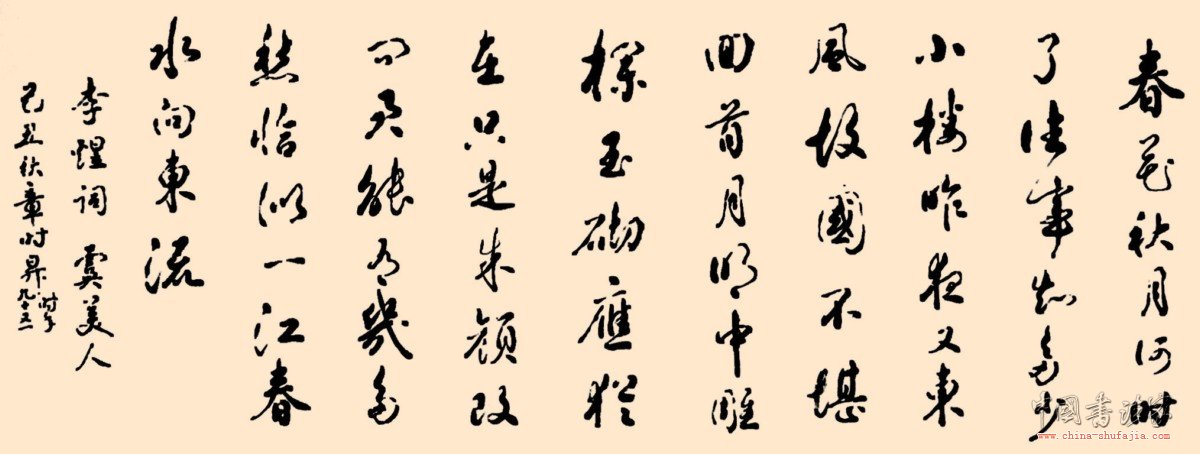 春花秋月何时
了往事知多少
小楼昨夜又東
風故國不堪
回首月明中雕
欄玉砌應猶
在只是朱顔改
问君能有幾多
愁恰似一江春
水向東流
李煜词 虞美人
己丑秋章时昇 时年九十
中国書法家
www.china-shufajia.com